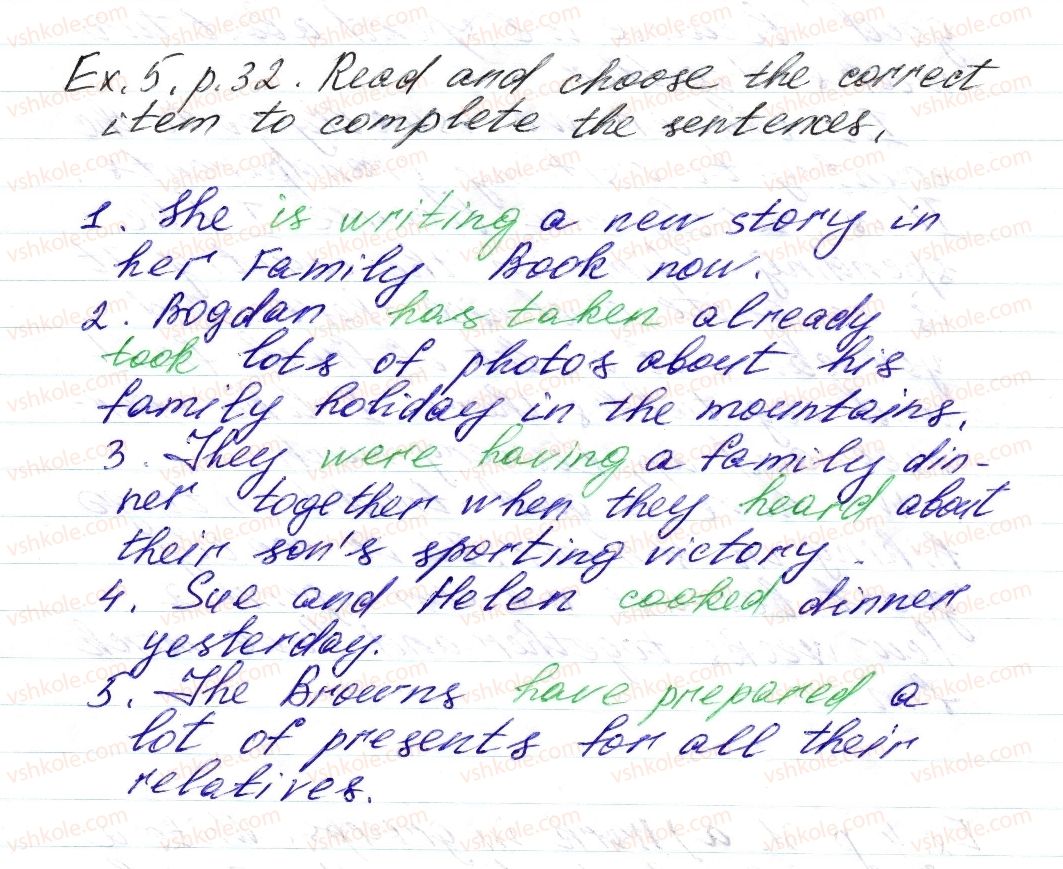 Ex. 5. p. 32. Read and choose the correct
item to complete the sentences.
1. She is writing a new story in
her Family Book now.
2. Bogdan has taken already
took lots of photos about his
family holiday in the mountains.
3. They were having a family din-
ner together when they heard about
their son's sporting victory.
4. Sue and Helen cooked dinner
yesterday.
5. The Browns have prepared a
lot of presents for all their
relatives.
vshkole.com